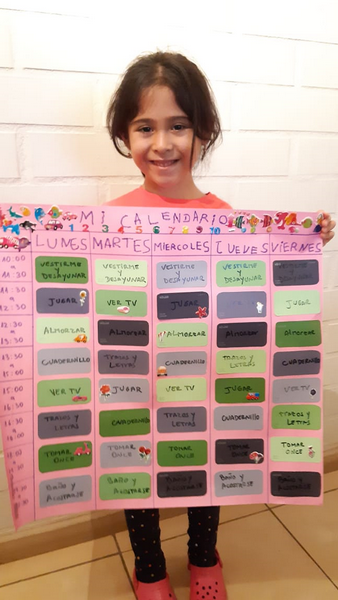 MI CALENDARIO
LUNES MARTES MIERCOLES JUEVES VIERNES
VESTIRME Y DESAYUNAR VESTIRME Y DESAYUNAR VESTIRME Y DESAYUNAR VESTIRME Y DESAYUNAR VESTIRME Y DESAYUNAR
JUGAR VER TV JUGAR VER TV JUGAR
ALMORZAR ALMORZAR ALMORZAR ALMORZAR ALMORZAR
CUADERNILLO TRAZOS Y LETRAS CUADERNILLO TRAZOS Y LETRAS CUADERNILLO
VER TV JUGAR VER TV JUGAR VER TV
TRAZOS Y LETRAS CUADERNILLO TRAZOS Y LETRAS CUADERNILLO TRAZOS Y LETRAS
TOMAR ONCE TOMAR ONCE TOMAR ONCE TOMAR ONCE TOMAR ONCE
BAÑO Y ACOSTARSE BAÑO Y ACOSTARSE BAÑO Y ACOSTARSE BAÑO Y ACOSTARSE BAÑO Y ACOSTARSE